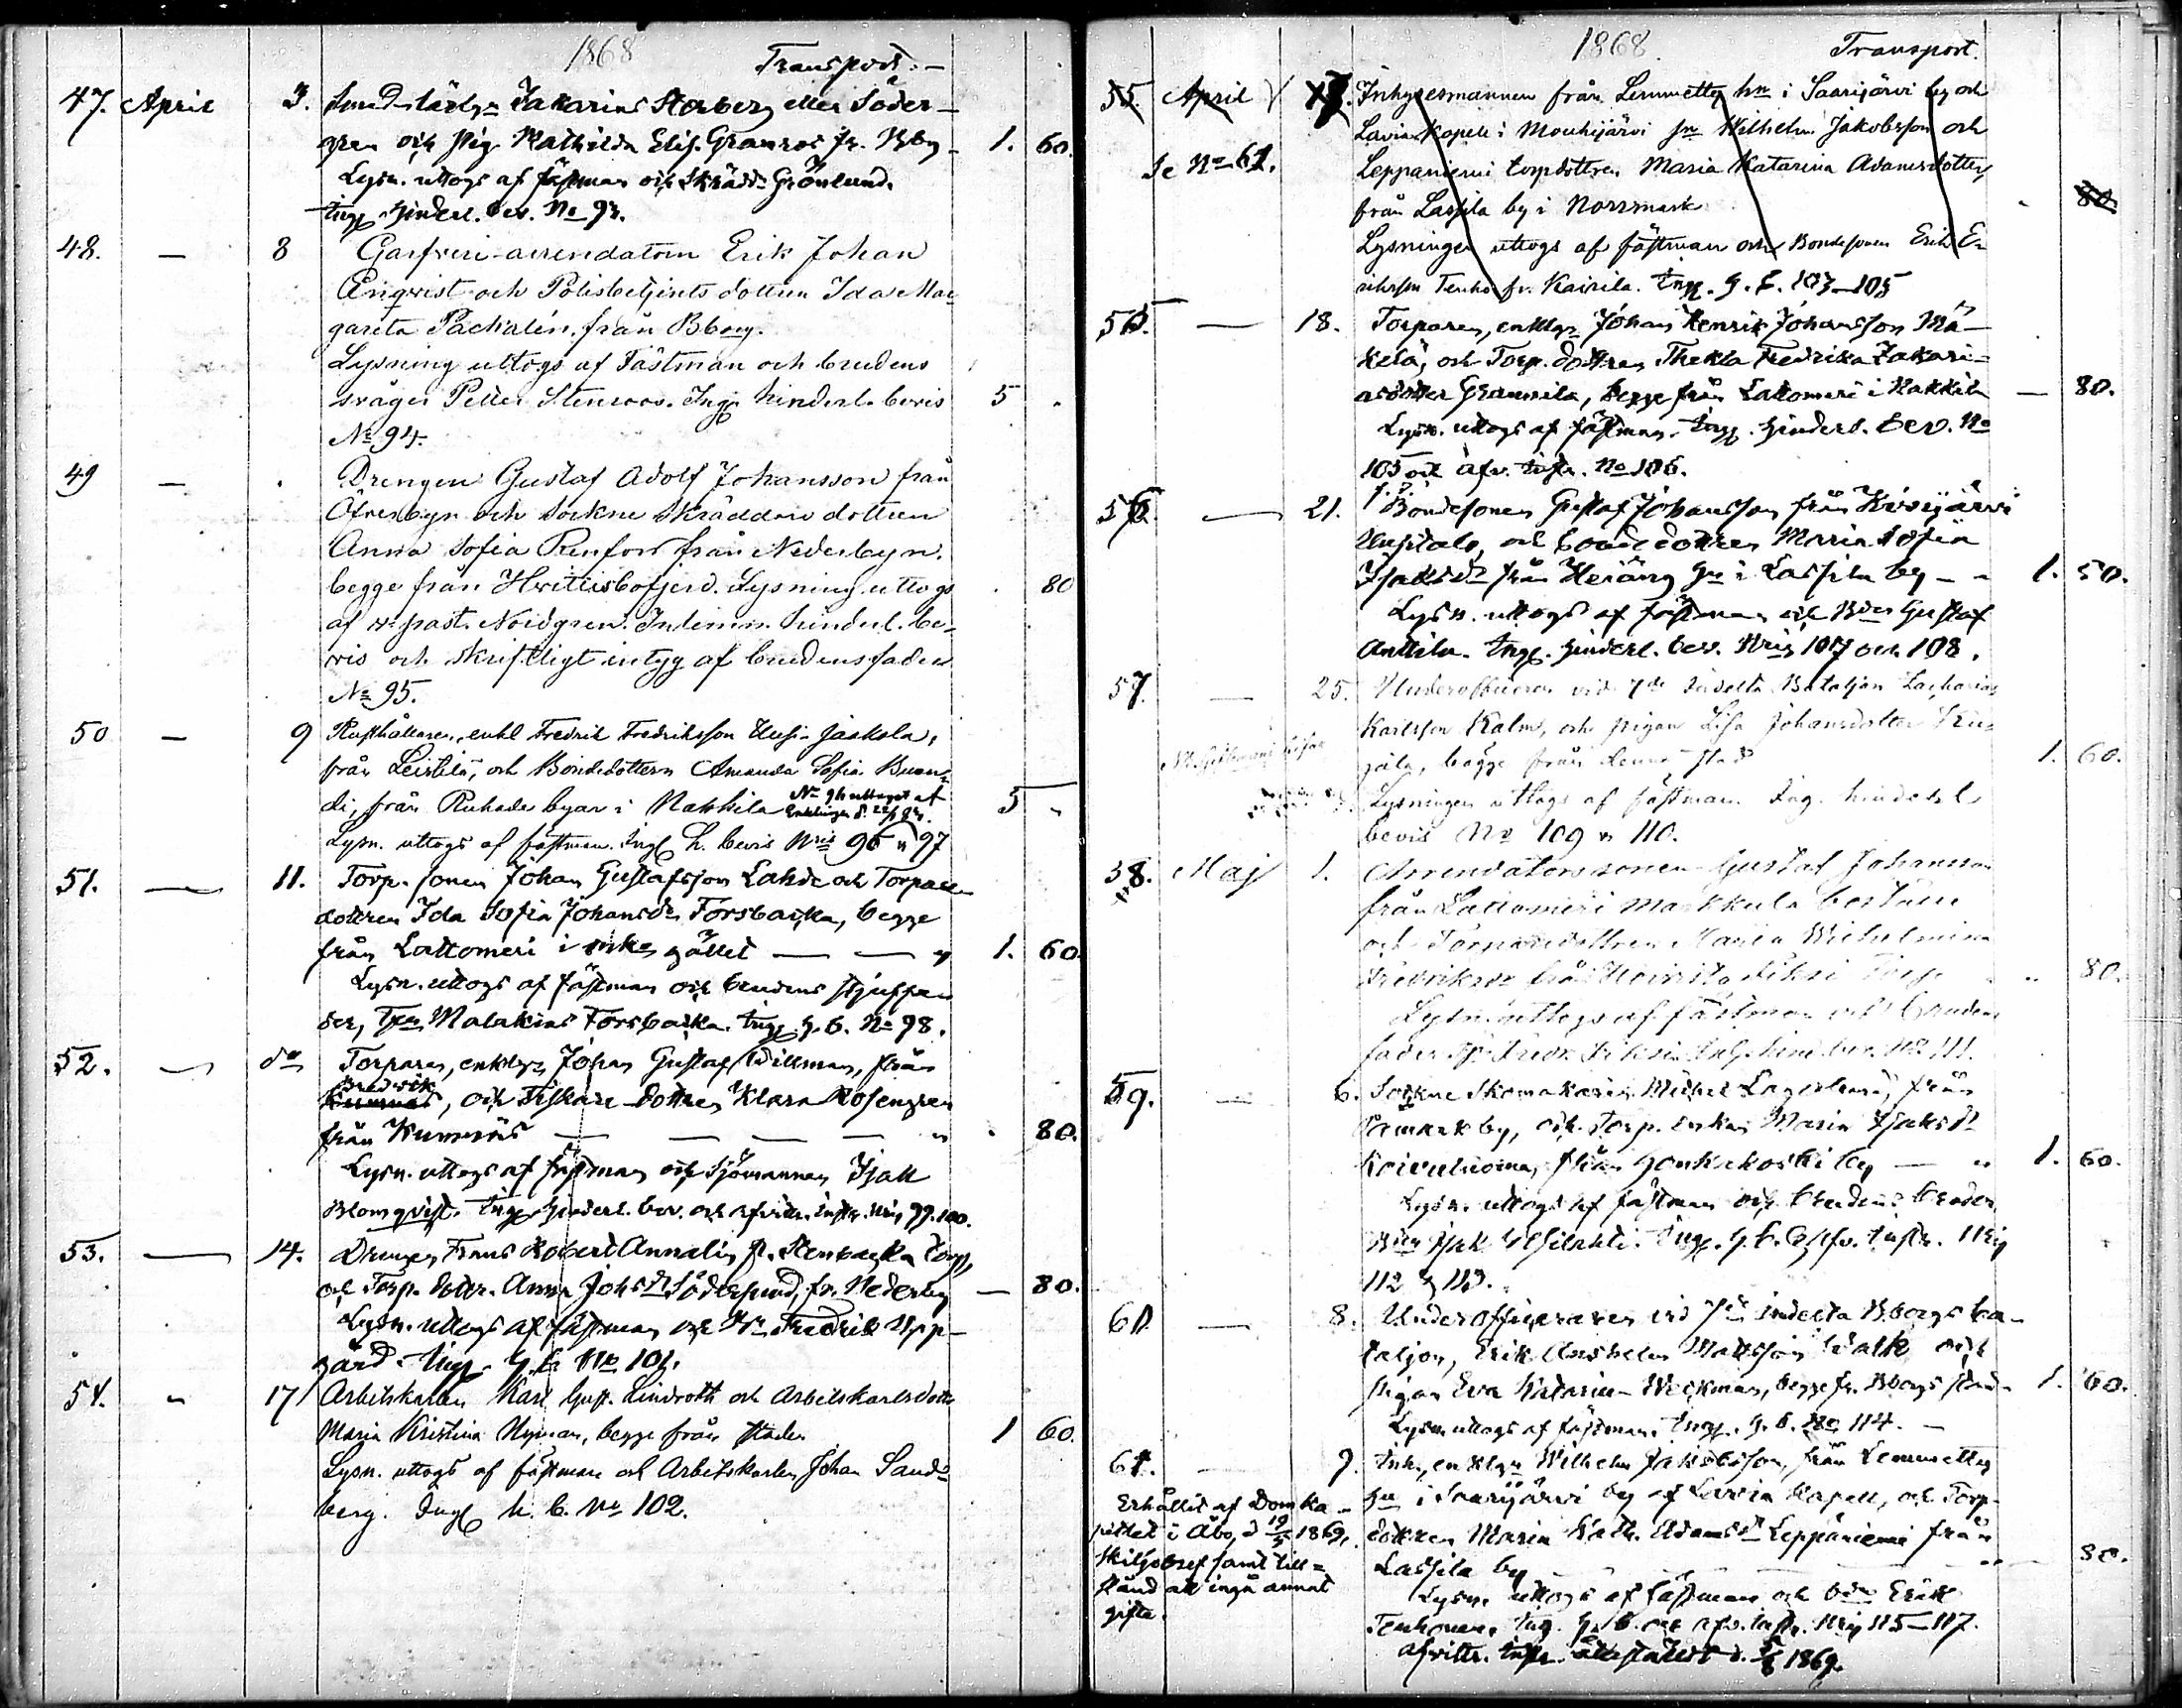 1868 Transport.
47. April 3. Smedslärlgn Zakarias Storberg eller Söder-
gren och pig. Mathilda Elis. Granroos fr. Bbg - 1. 60.
Lysn. uttogs af fästman och Skrädd. Grönlund.
Ingg. hinderl. bev. No 93.
48. — 8 Garfveri-arrendatorn Erik Johan
Enqvist och Polisbetjents dottren Ida Mar
gareta Pachalén från Bborg.
Lysning uttogs af Fästman och brudens
svåger Petter Stenroos. Ingg. hinderl. bevis 5 "
No 94.
49 — Drengen Gustaf Adolf Johansson från
Öfverbyn och Sockne Skräddare dottren
Anna Sofia Renfors från Nederbyn.
begge från Hvittisbofjerd. Lysning uttogs 80
af v. past. Nordgren. Inlemn. hinderl. be-
vis och skriftligt intyg af brudens fader
No 95.
50 — 9 Rusthållaren, enkl Fredrik Fredriksson Uusi-Jaakola,
från Leistilä, och Bondedottern Amanda Sofia Buan-
di, från Ruhade byar i Nakkila No 96 uttaget af 5 "
Enklingen d. 22/
Lysn. uttogs af fästman. Ingg h. bevis Nris 96 " 97
51. — 11. Torp. sonen Johan Gustafsson Lahde och Torpare
dottren Ida Sofia Johansdr Forsbacka, begge
från Lattomeri i gället — — " 1. 60
Lysn. uttogs af fästman och brudens styffa
der, Tpn Malakias Forsbacka. Ingg. h. b. No 98.
52. — do Torparen, enklgn Johan Gustaf Willman, från
Bredvik
Kumnäs, och Fiskare dottren Klara Rosengren
från Kumnäs — — — — " . 80.
Lysn. uttogs af fästman och Sjömannen Isak
Blomqvist. Ingg. hinderl. bev. och afvittr. instr. Nris 99. 100.
53. — 14. Drengen Frans Robert Annelin fr. Stenbacka Torp,
och Torp. dottr. Anna Johsdr Söderlund, fr. Nederby — 80.
Lysn. uttogs af fästman och Fredrik Upp-
gård. Ingg. h. b. No 101.
54. " 17 Arbetskarlen Karl Gust. Lindroth och Arbetskarlsdottr
Maria Kristina Nyman, begge från staden 1 60.
Lysn. uttogs af fästman och Arbetskarlen Johan Sand-
berg. Ingg h. b. No 102.
1868. Transport.
55. April 17. Inhysesmannen från Lemmetty hn i Saarijärvi by och
Lavia Kapell i Mouhijärvi sn Wilhelm Jakobsson och
Se No 61. Leppäniemi torpdottren Maria Katarina Adamsdotter,
från Lassila by i Norrmark 80
Lysningen uttogs af fästman och Bondesonen Erik E-
riksson Tenho fr. Kairila. Ingg. h. b. 103-105
55. — 18. Torparen, enklgn Johan Henrik Johansson Mä-
kelä, och Torp. dottren Thekla Fredrika Zakari-
asdotter Grannila, begge från Lattomeri i Nakkila — 80.
Lysn. uttogs af fästman. Ingg. hinderl. bev. No
105 och afv. instr. No 106.
56. — 21. Bondesonen Gustaf Johansson från Kivijärvi
Uusitalo, och bonde dottren Maria Sofia
Isaksdr från Heiäng hn i Lassila by - - 1. 50.
Lysn. uttogs af fästman och Bden Gustaf
Anttila. Ingg. hinderl. bev. Nris 107 och 108.
57. — 25. Underofficeren vid 7de Indelta Bataljon Zacharias
Karlsson Kalm, och pigan Lisa Johansdotter Ku-
jala, begge från denna stad 1. 60.
Lysningen uttogs af fästman. Ingg. hinderl.
bevis No 109 & 110.
58. Maj 1. Arrendatorssonen Gustaf Johansson
från Lattomeri Markkula boställe
och Torparedottren Maria Wilhelmina
Fredriksdr från " " 80.
Lysn. uttogs af fästman och brudens
fader hind. bev. No 111.
59. — 6. Sockne Skomakaren Mickel Lagerlund, från
by, och Torp. enkan Maria Isaksdr
Koivuluoma, från Honkakoski by — " 1. 60.
Lysn. uttogs af fästman och brudens broder,
Bden Isak Ylisilahti. Ingg. h. b. & afv. instr. Nris
112 & 113.
60 — 8. Underofficeraren vid 7de indelta Bborgs ba-
taljon, Erik Anshelm Mattsson Walk och
pigan Eva Katarina Weckman, begge fr. Bborgs stad. 1. 60.
Lysn. uttogs af fästman. Ingg. h. b. No 114. —
61. — 9. Inh., enklgn Wilhelm Jakobsson, från Lemmetty
hn i Saarijärvi by af Lavia Kapell, och Torp.
dottren Maria Kath. Adamsdr Leppäniemi från
Lassila by " — 80.
Lysn. uttogs af fästman och bden Erik
Tenhonen. Ingg. h. b. och afv. instr. Nris 115-117.
Afvittr. instr. återstäldt d. 1869.
Erhållit af Domka-
pitlet i Åbo, d 19/5 1869,
Skiljobref samt till=
stånd att ingå annat
gifte.